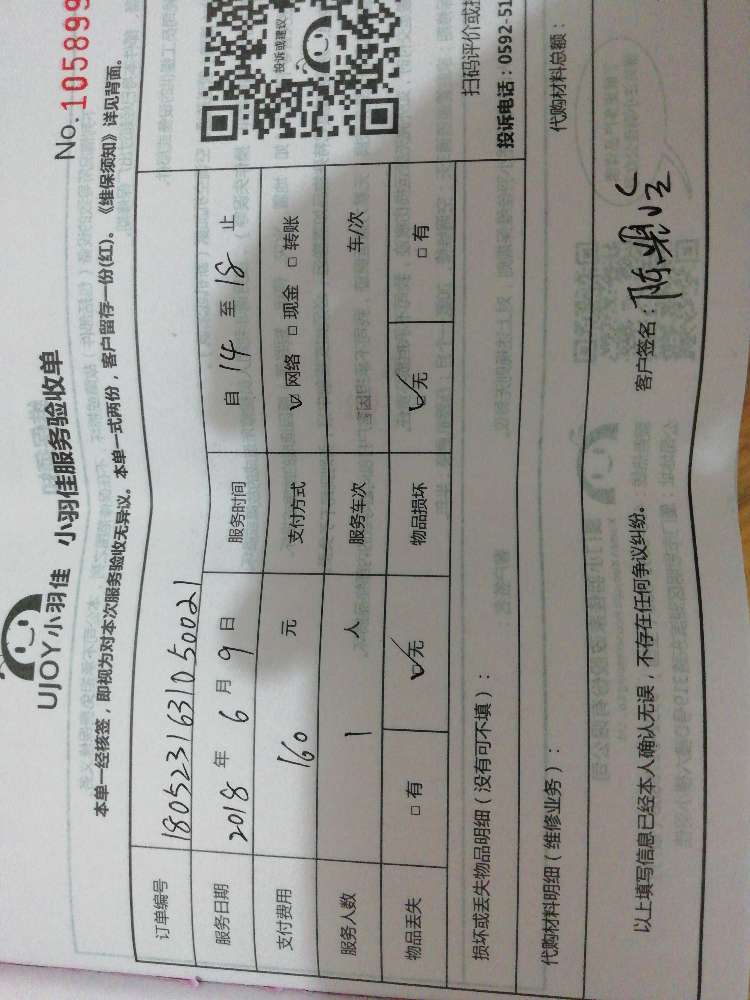 UJOY小羽佳 小羽佳服务验收单
No.105899
本单一经核签，即视为对本次服务验收无异议。本单一式两份，客户留存一份(红)。《维保须知》详见背面。
订单编号 1805231631050021
服务日期 2018 年 6 月 9 日 服务时间 自 14 至 18 止
支付费用 160 元 支付方式 ☑ 网络 □ 现金 □ 转账
服务人数 1 人 服务车次 车/次
物品丢失 □ 有 ☑ 无 物品损坏 ☑ 无 □ 有
投诉或建议
扫码评价或投
损坏或丢失物品明细（没有可不填）：
投诉电话：0592-51
代购材料明细（维修业务）：
代购材料总额：
以上填写信息已经本人确认无误，不存在任何争议纠纷。 客户签名：